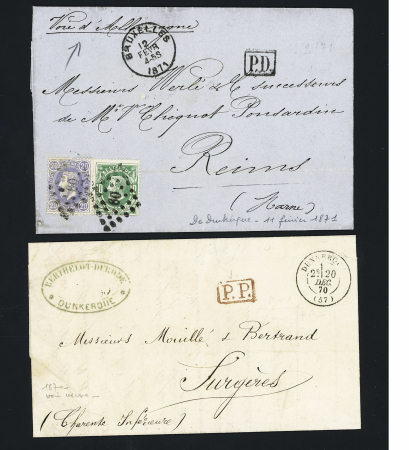 Voie d'Allemagne
BRUXELLES
12
FEVR
4-5S
1871
P.D.
Messieurs Werlé & C successeurs
de Mr Vve Clicquot Ponsardin
Reims
(Marne)
De Dunkerque - 11 février 1871
BERTHELOT-
DUNKERQUE
DUNKERQUE
2E 20
DEC.
70
(57)
P.P.
Messieurs Mouillé & Bertrand
Surgères
1870
voir verso
(Charente Inférieure)